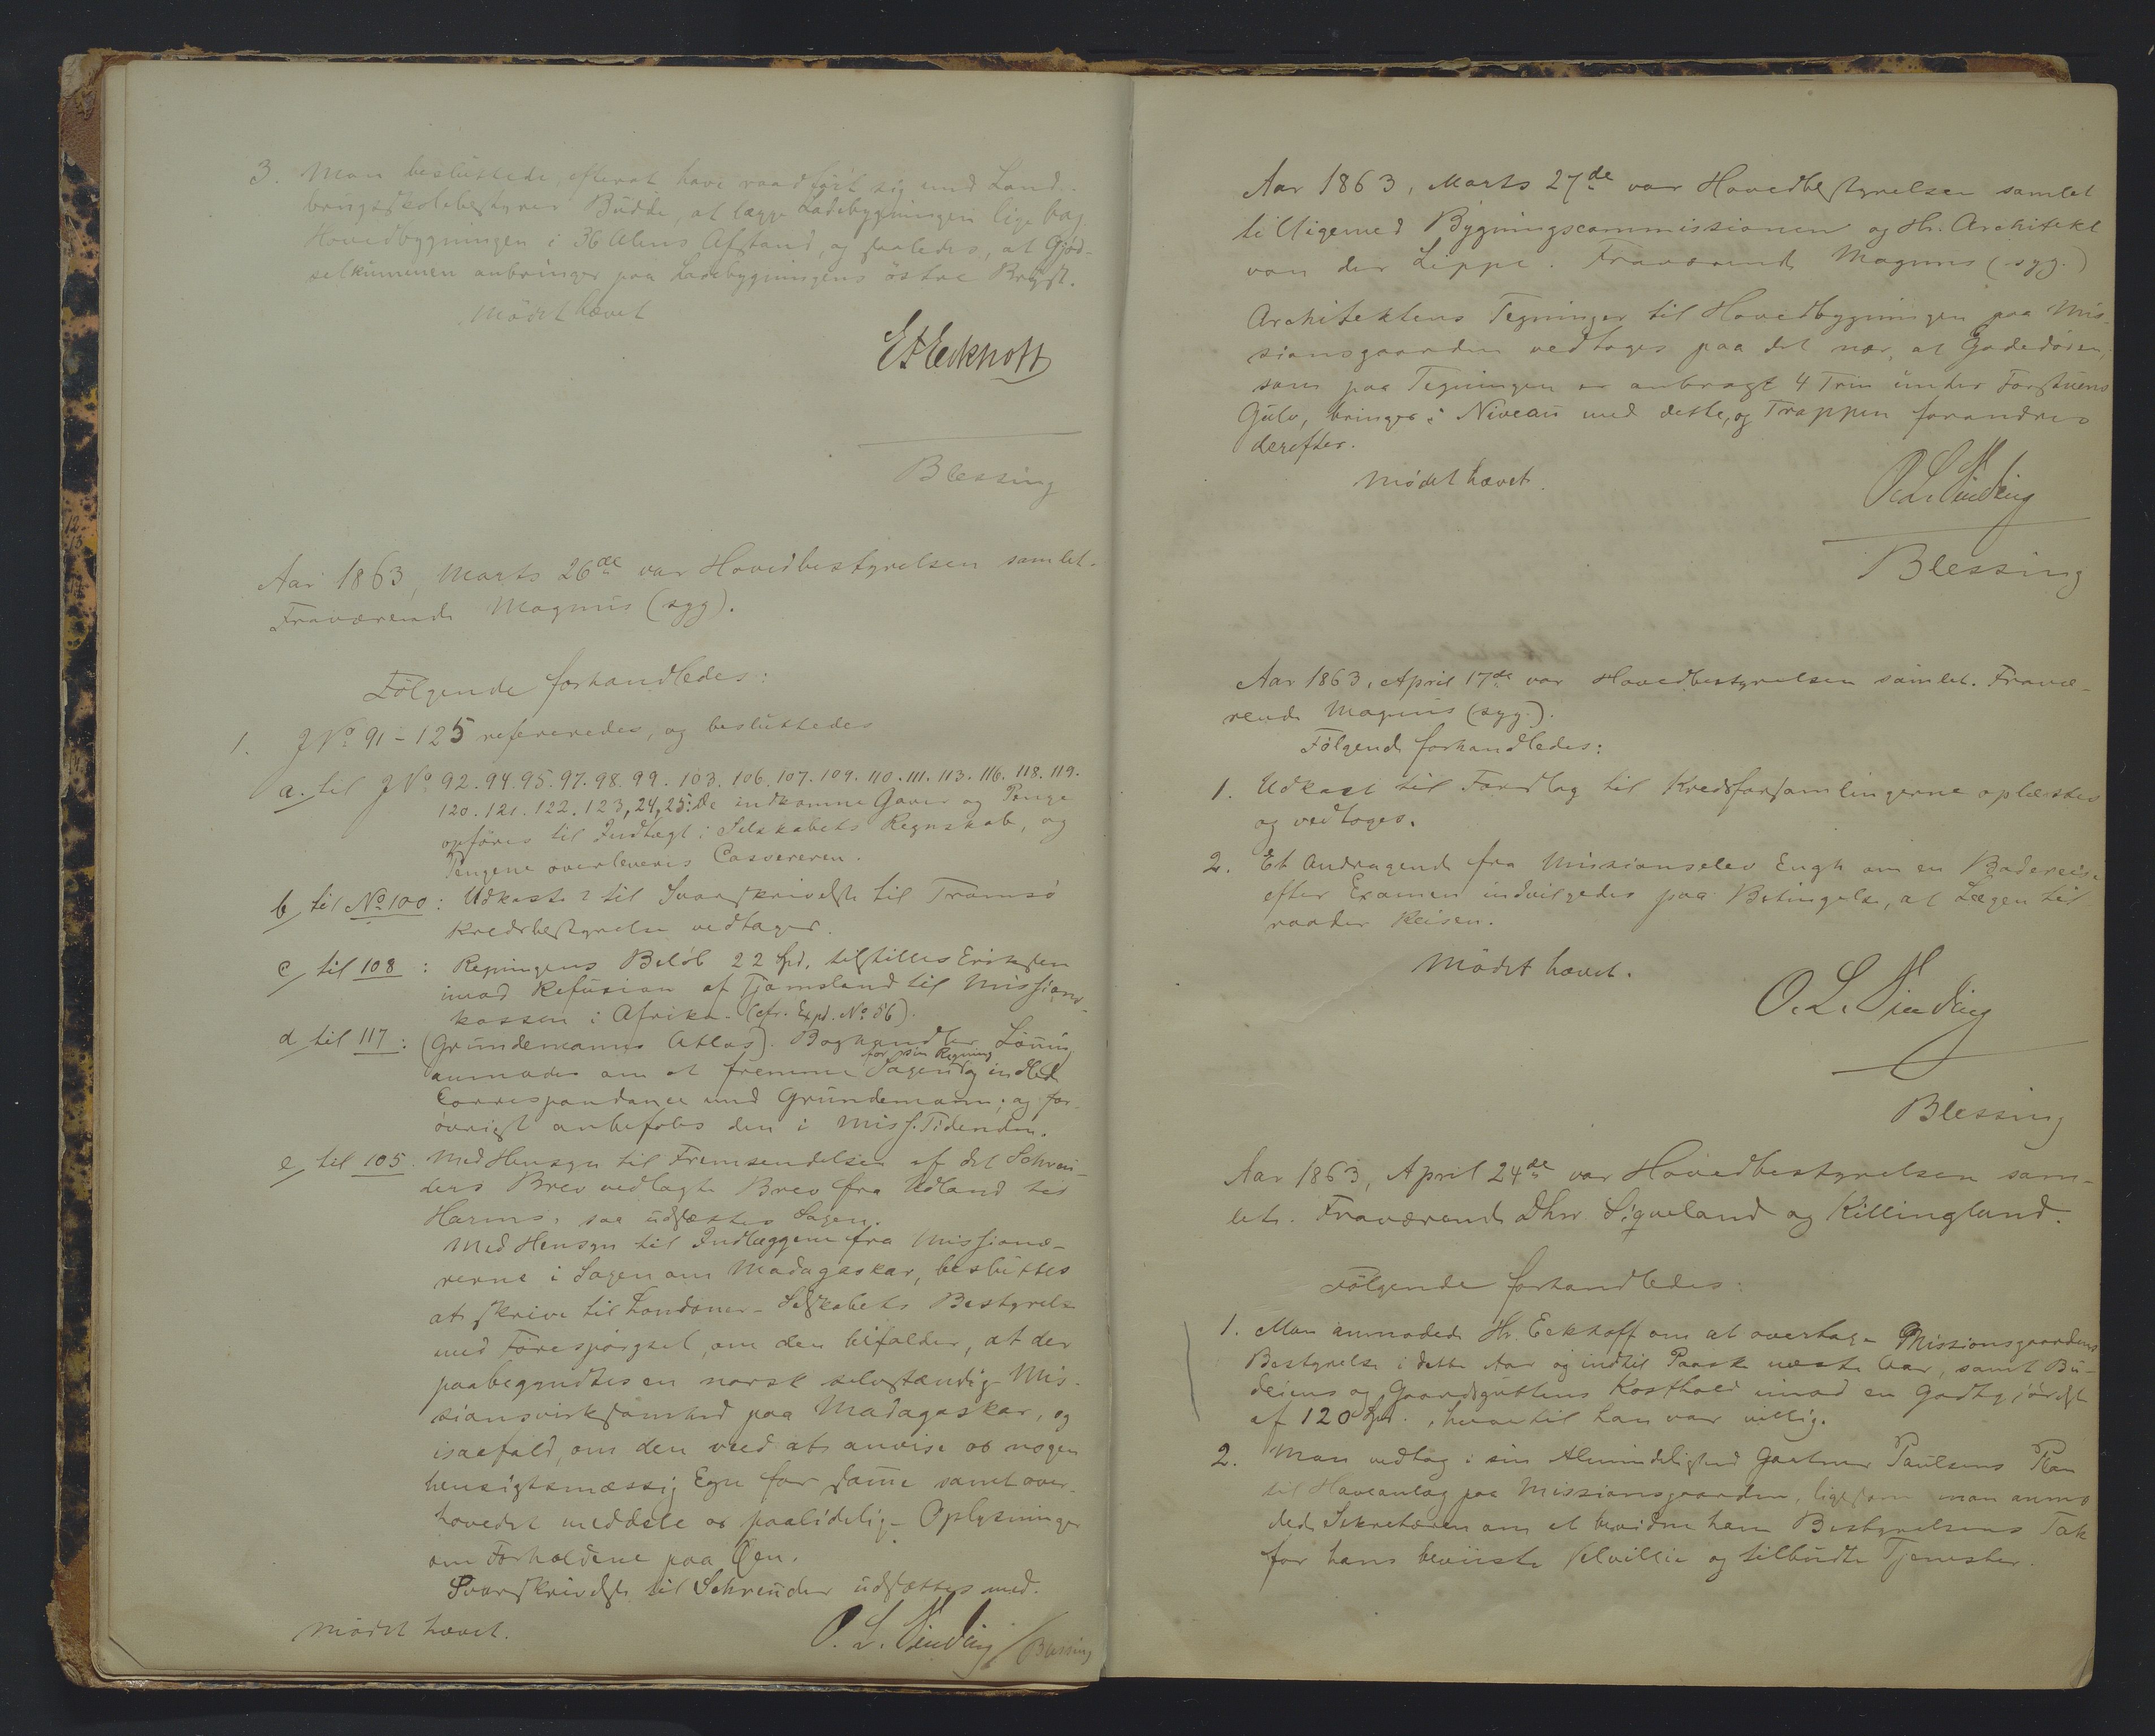 3. Man besluttede, efterat have raadført sig med Land-
brugsskolebestyrer Budde, at lægge Ladebygningen lige bag
Hovedbygningen i 36 Alens Afstand, og saaledes, at Gjød-
selkummen anbringes paa Ladebygningens östre Bryst.
Mödet hævet
Blessing
Aar 1863, Marts 26de var Hovedbestyrelsen samlet.
Fraværende Magnus (syg).
Fölgende forhandledes:
1. J No 91-125 refereredes, og besluttedes
a. til J No 92. 94. 95. 97. 98. 99. 103. 106. 107. 109. 110. 111. 113. 116. 118. 119.
120. 121. 122. 123, 24, 25: De indkomne Gaver og Penge
opföres til Indtægt i Selskabets Regnskab, og
Pengene overleveres Cassereren.
b/ til No 100: Udkast til Svarskrivelse til Tromsö
Kredsbestyrelse vedtages.
c/ til 108: Regningens Belöb 22 Spd. tilstilles Eriksen
imod Refusion af Tjomsland til Missions-
kassen i Afrika. (cfr. Expd. No 56).
d/ til 117: (Grundemanns Atlas). Boghandler
anmodes om at fremme Sagen og indlede
for sin Regning
Correspondance med Grundemann; og for-
övrigt anbefales den i Miss. Tidenden.
e/ til 105. Med Hensyn til Fremsendelsen af det Schreu-
ders Brev vedlagte Brev fra Udland til
Harms, saa udsættes Sagen.
Med Hensyn til Indlæggene fra Missionæ-
rerne i Sagen om Madagaskar, besluttes
at skrive til Londoner-Selskabets Bestyrelse
med Forespörgsel, om den bifalder, at der
paabegyndtes en norsk selvstændig Mis-
sionsvirksomhed paa Madagaskar, og
isaafald, om den veed at anvise os nogen
hensigtsmæssig Egn for samme samt over-
hovedet meddele os paalidelige Oplysninger
om Forholdene paa Öen.
Svarskrivelse til Schreuder udsættes med.
Mödet hævet.
O. L. Sinding / Blessing
Aar 1863, Marts 27de var Hovedbestyrelsen samlet
tilligemed Bygningscommissionen og Hr. Architekt
von der Lippe. Fraværende Magnus (syg.)
Architektens Tegninger til Hovedbygningen paa Mis-
sionsgaarden vedtoges paa det nær, at Gadedören,
som paa Tegningen er anbragt 4 Trin under Forstuens
Gulv, bringes i Niveau med dette, og Trappen forandres
derefter.
Mödet hævet.
O. L. Sinding
Blessing
Aar 1863, April 17de var Hovedbestyrelsen samlet. Fravæ-
rende Magnus (syg.).
Fölgende forhandledes:
1. Udkast til Foredrag til Kredsforsamlingerne oplæstes
og vedtoges.
2. Et Andragende fra Missionselev Engh om en Badereise
efter Examen indvilgedes paa Betingelse, at Lægen til-
raader Reisen.
Mödet hævet.
O. L. Sinding
Blessing
Aar 1863, April 24de var Hovedbestyrelsen sam-
let. Fraværende Dhrr Siqveland og Killingland.
Fölgende forhandledes:
1. Man anmodede Hr. Eckhoff om at overtage Missionsgaardens
Bestyrelse i dette Aar og indtil Paaske næste Aar, samt Bu-
deiens og Gaardsguttens Kosthold imod en Godtgjörelse
af 120 Spd., hvortil han var villig.
2. Man vedtog i sin Almindelighed Gartner Paulsens Plan
til Haveanlæg paa Missionsgaarden, ligesom man anmo-
dede Sekretæren om at bevidne ham Bestyrelsens Tak
for hans beviiste Velvillie og tilbudte Tjenester.